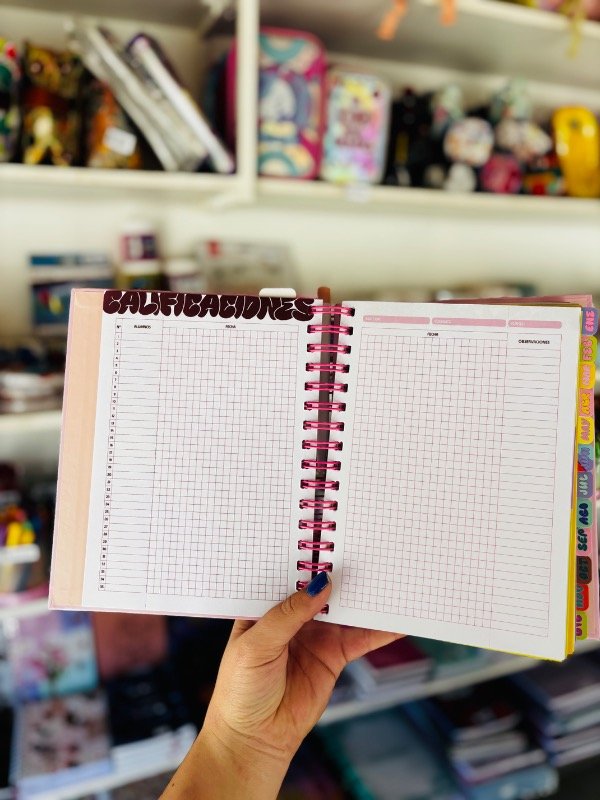 CALIFICACIONES
N° ALUMNOS FECHA
1
2
3
4
5
6
7
8
9
10
11
12
13
14
15
16
17
18
19
20
21
22
23
24
25
26
27
28
29
30
31
32
33
34
35
FECHA
OBSERVACIONES
ENE
FEB
MAR
ABR
MAY
JUN
JUL
AGO
SEP
OCT
NOV
DIC